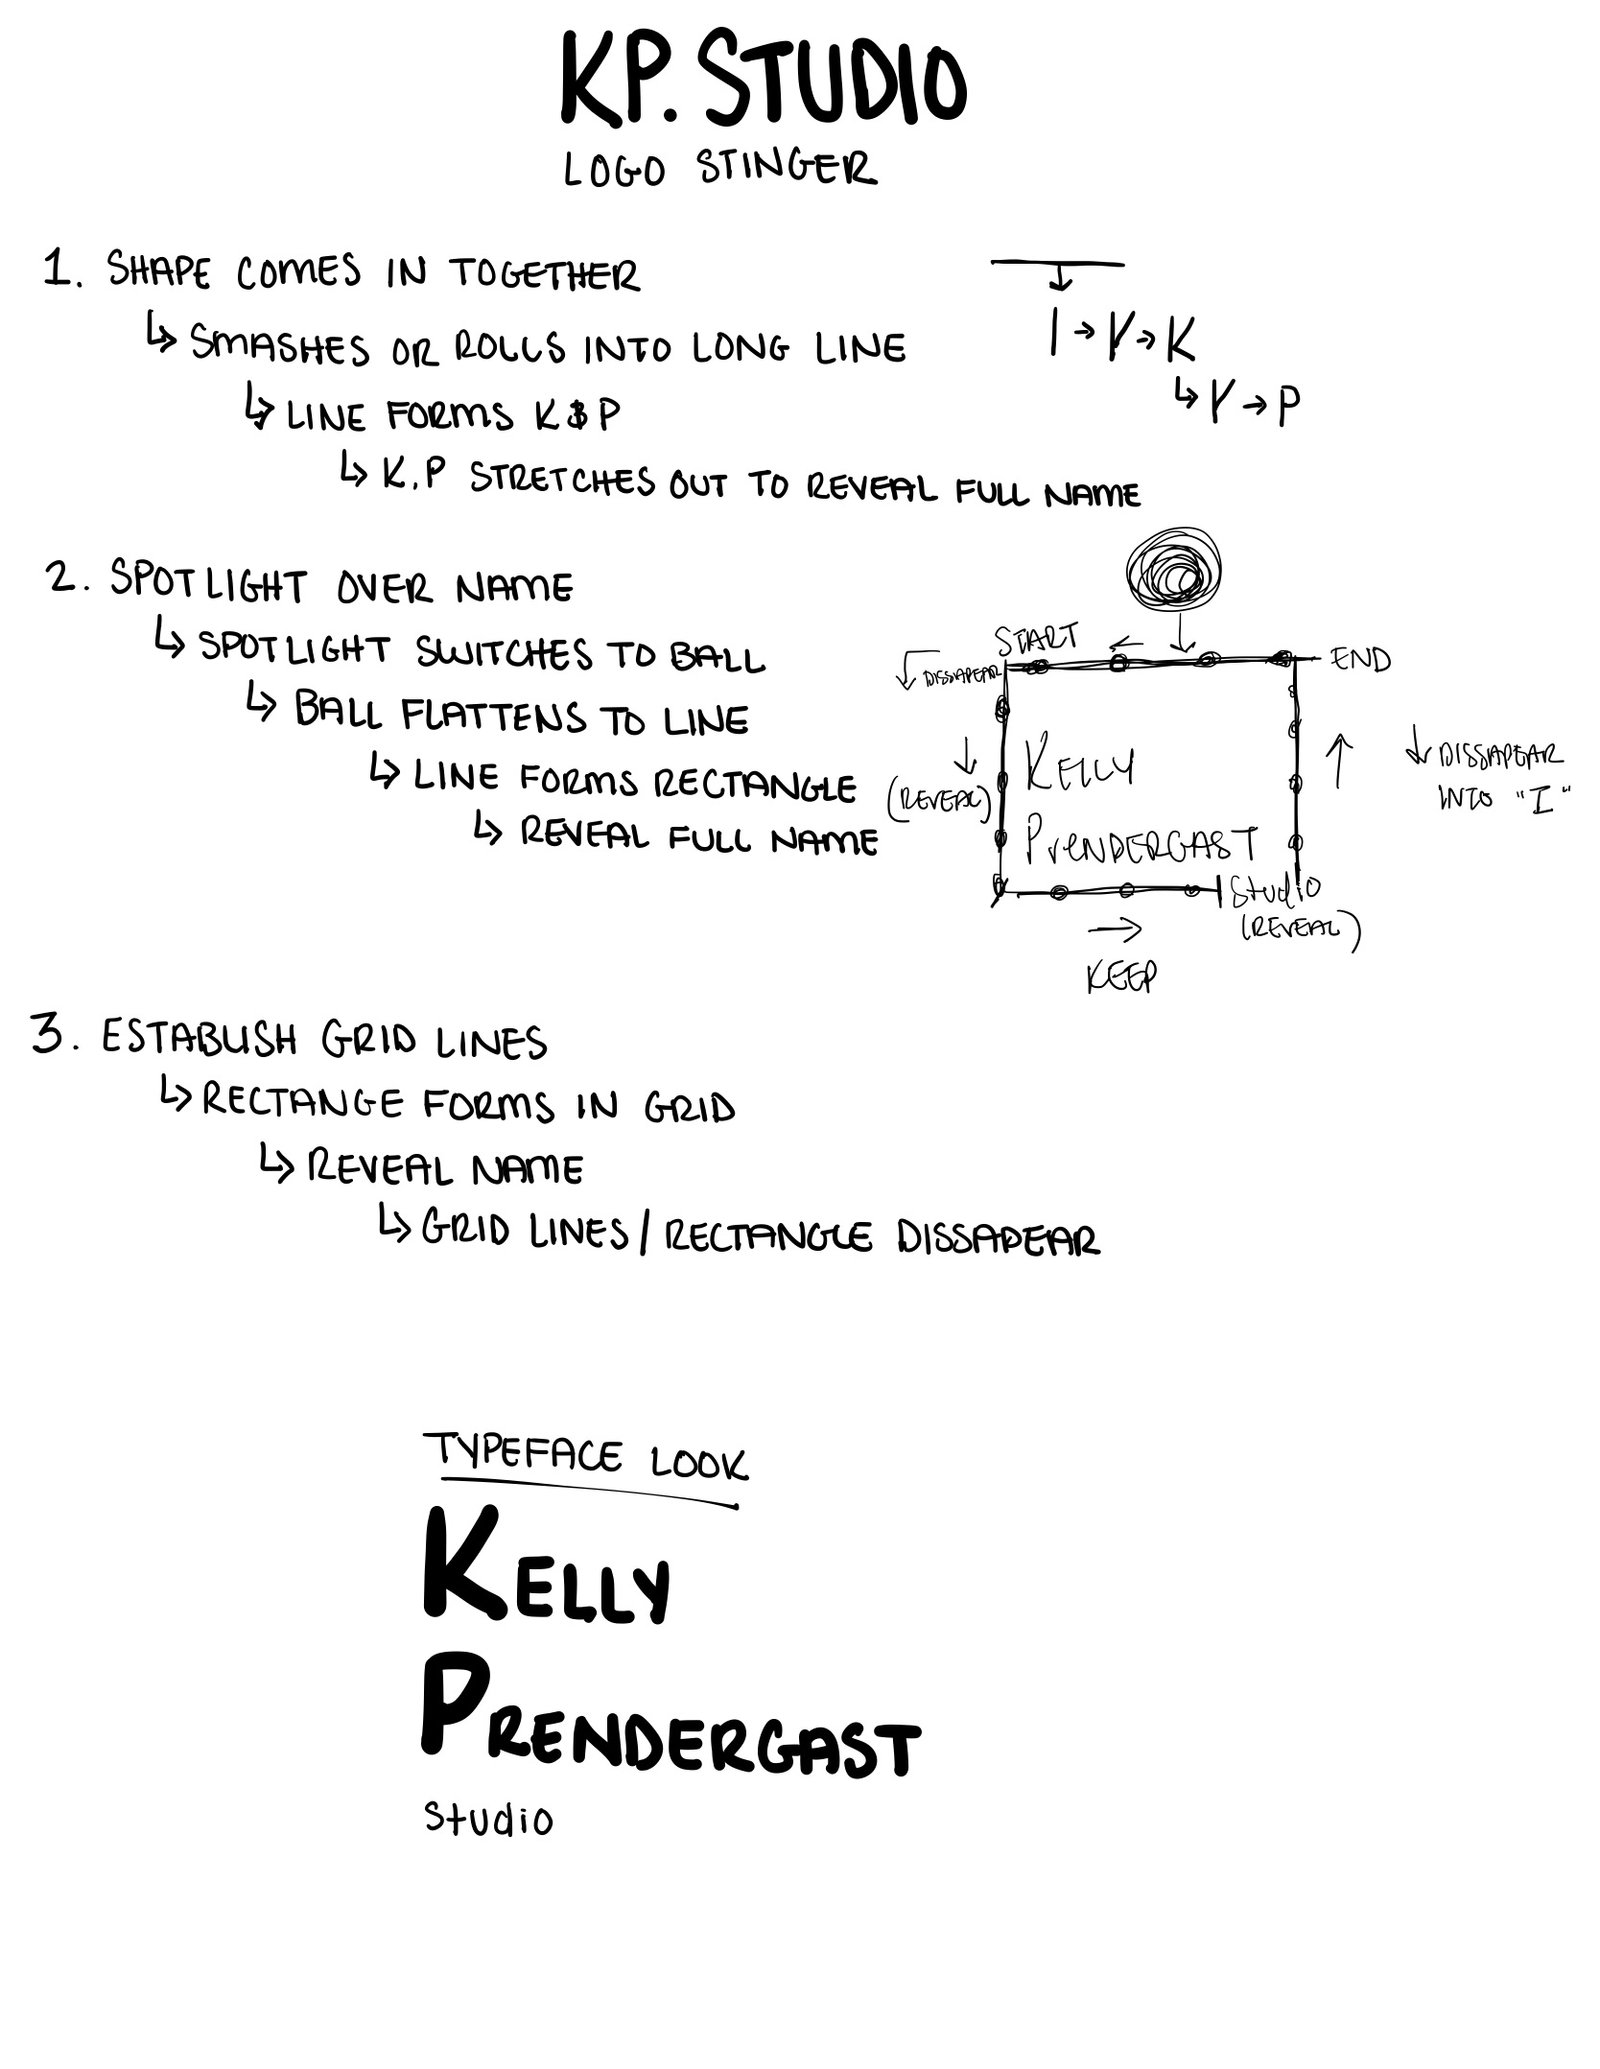 KP. STUDIO
LOGO STINGER
1. SHAPE COMES IN TOGETHER
↳ SMASHES OR ROLLS INTO LONG LINE
↳ LINE FORMS K & P
↳ K.P STRETCHES OUT TO REVEAL FULL NAME
I → V → K
↳ V → P
2. SPOTLIGHT OVER NAME
↳ SPOTLIGHT SWITCHES TO BALL
↳ BALL FLATTENS TO LINE
↳ LINE FORMS RECTANGLE
↳ REVEAL FULL NAME
START
END
DISSAPEAR
(REVEAL)
KELLY
PrENDERGAST
Studio
(REVEAL)
KEEP
DISSAPEAR
INTO "I"
3. ESTABLISH GRID LINES
↳ RECTANGE FORMS IN GRID
↳ REVEAL NAME
↳ GRID LINES / RECTANGLE DISSAPEAR
TYPEFACE LOOK
KELLY
PRENDERGAST
Studio